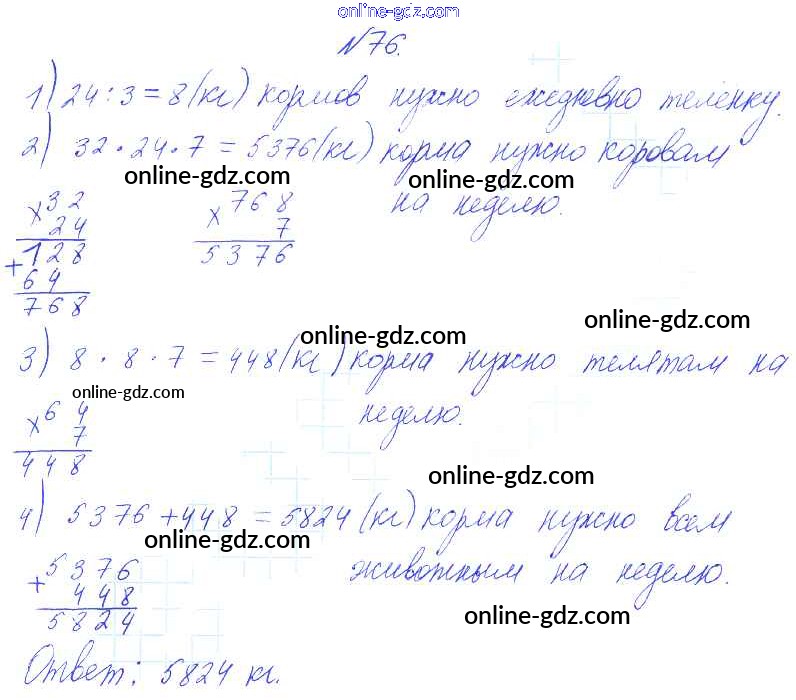 online-gdz.com
№76.
1) 24 : 3 = 8 (кг) кормов нужно ежедневно теленку.
2) 32 · 24 · 7 = 5376 (кг) корма нужно коровам
online-gdz.com online-gdz.com
на неделю.
× 32
24
+ 128
64
768
× 768
7
5376
online-gdz.com
online-gdz.com
3) 8 · 8 · 7 = 448 (кг) корма нужно телятам на
online-gdz.com
неделю.
× 64
7
448
online-gdz.com
4) 5376 + 448 = 5824 (кг) корма нужно всем
online-gdz.com
животным на неделю.
+ 5376
448
5824
online-gdz.com
Ответ: 5824 кг.